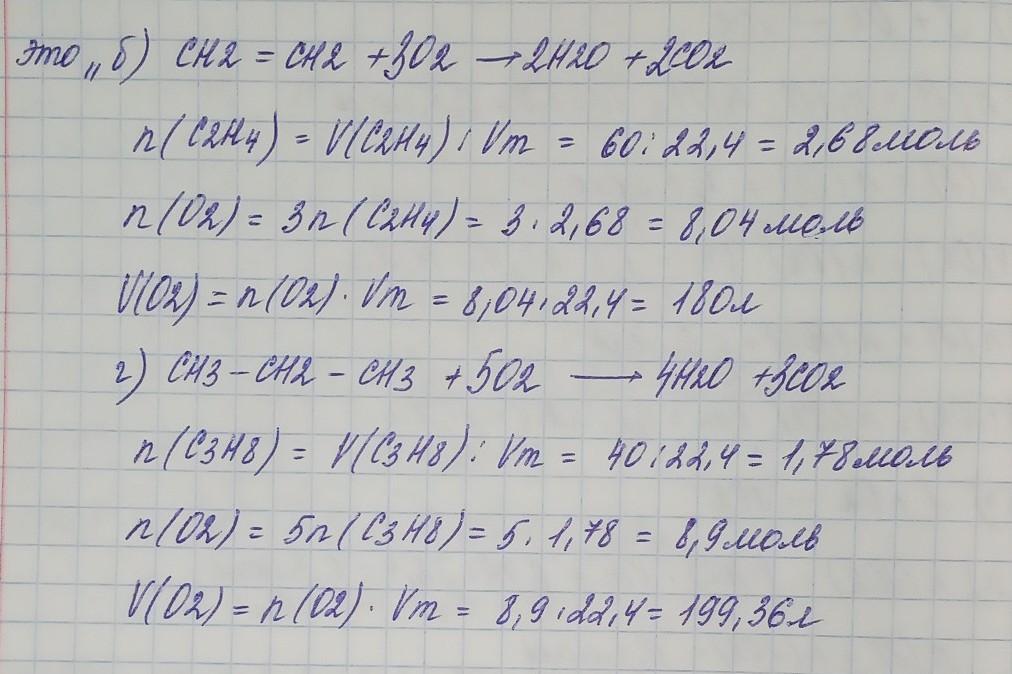 это „б) CH2 = CH2 + 3O2 → 2H2O + 2CO2
n(C2H4) = V(C2H4) : Vm = 60 : 22,4 = 2,68 моль
n(O2) = 3n(C2H4) = 3 · 2,68 = 8,04 моль
V(O2) = n(O2) · Vm = 8,04 · 22,4 = 180 л
г) CH3 - CH2 - CH3 + 5O2 → 4H2O + 3CO2
n(C3H8) = V(C3H8) : Vm = 40 : 22,4 = 1,78 моль
n(O2) = 5n(C3H8) = 5 · 1,78 = 8,9 моль
V(O2) = n(O2) · Vm = 8,9 · 22,4 = 199,36 л